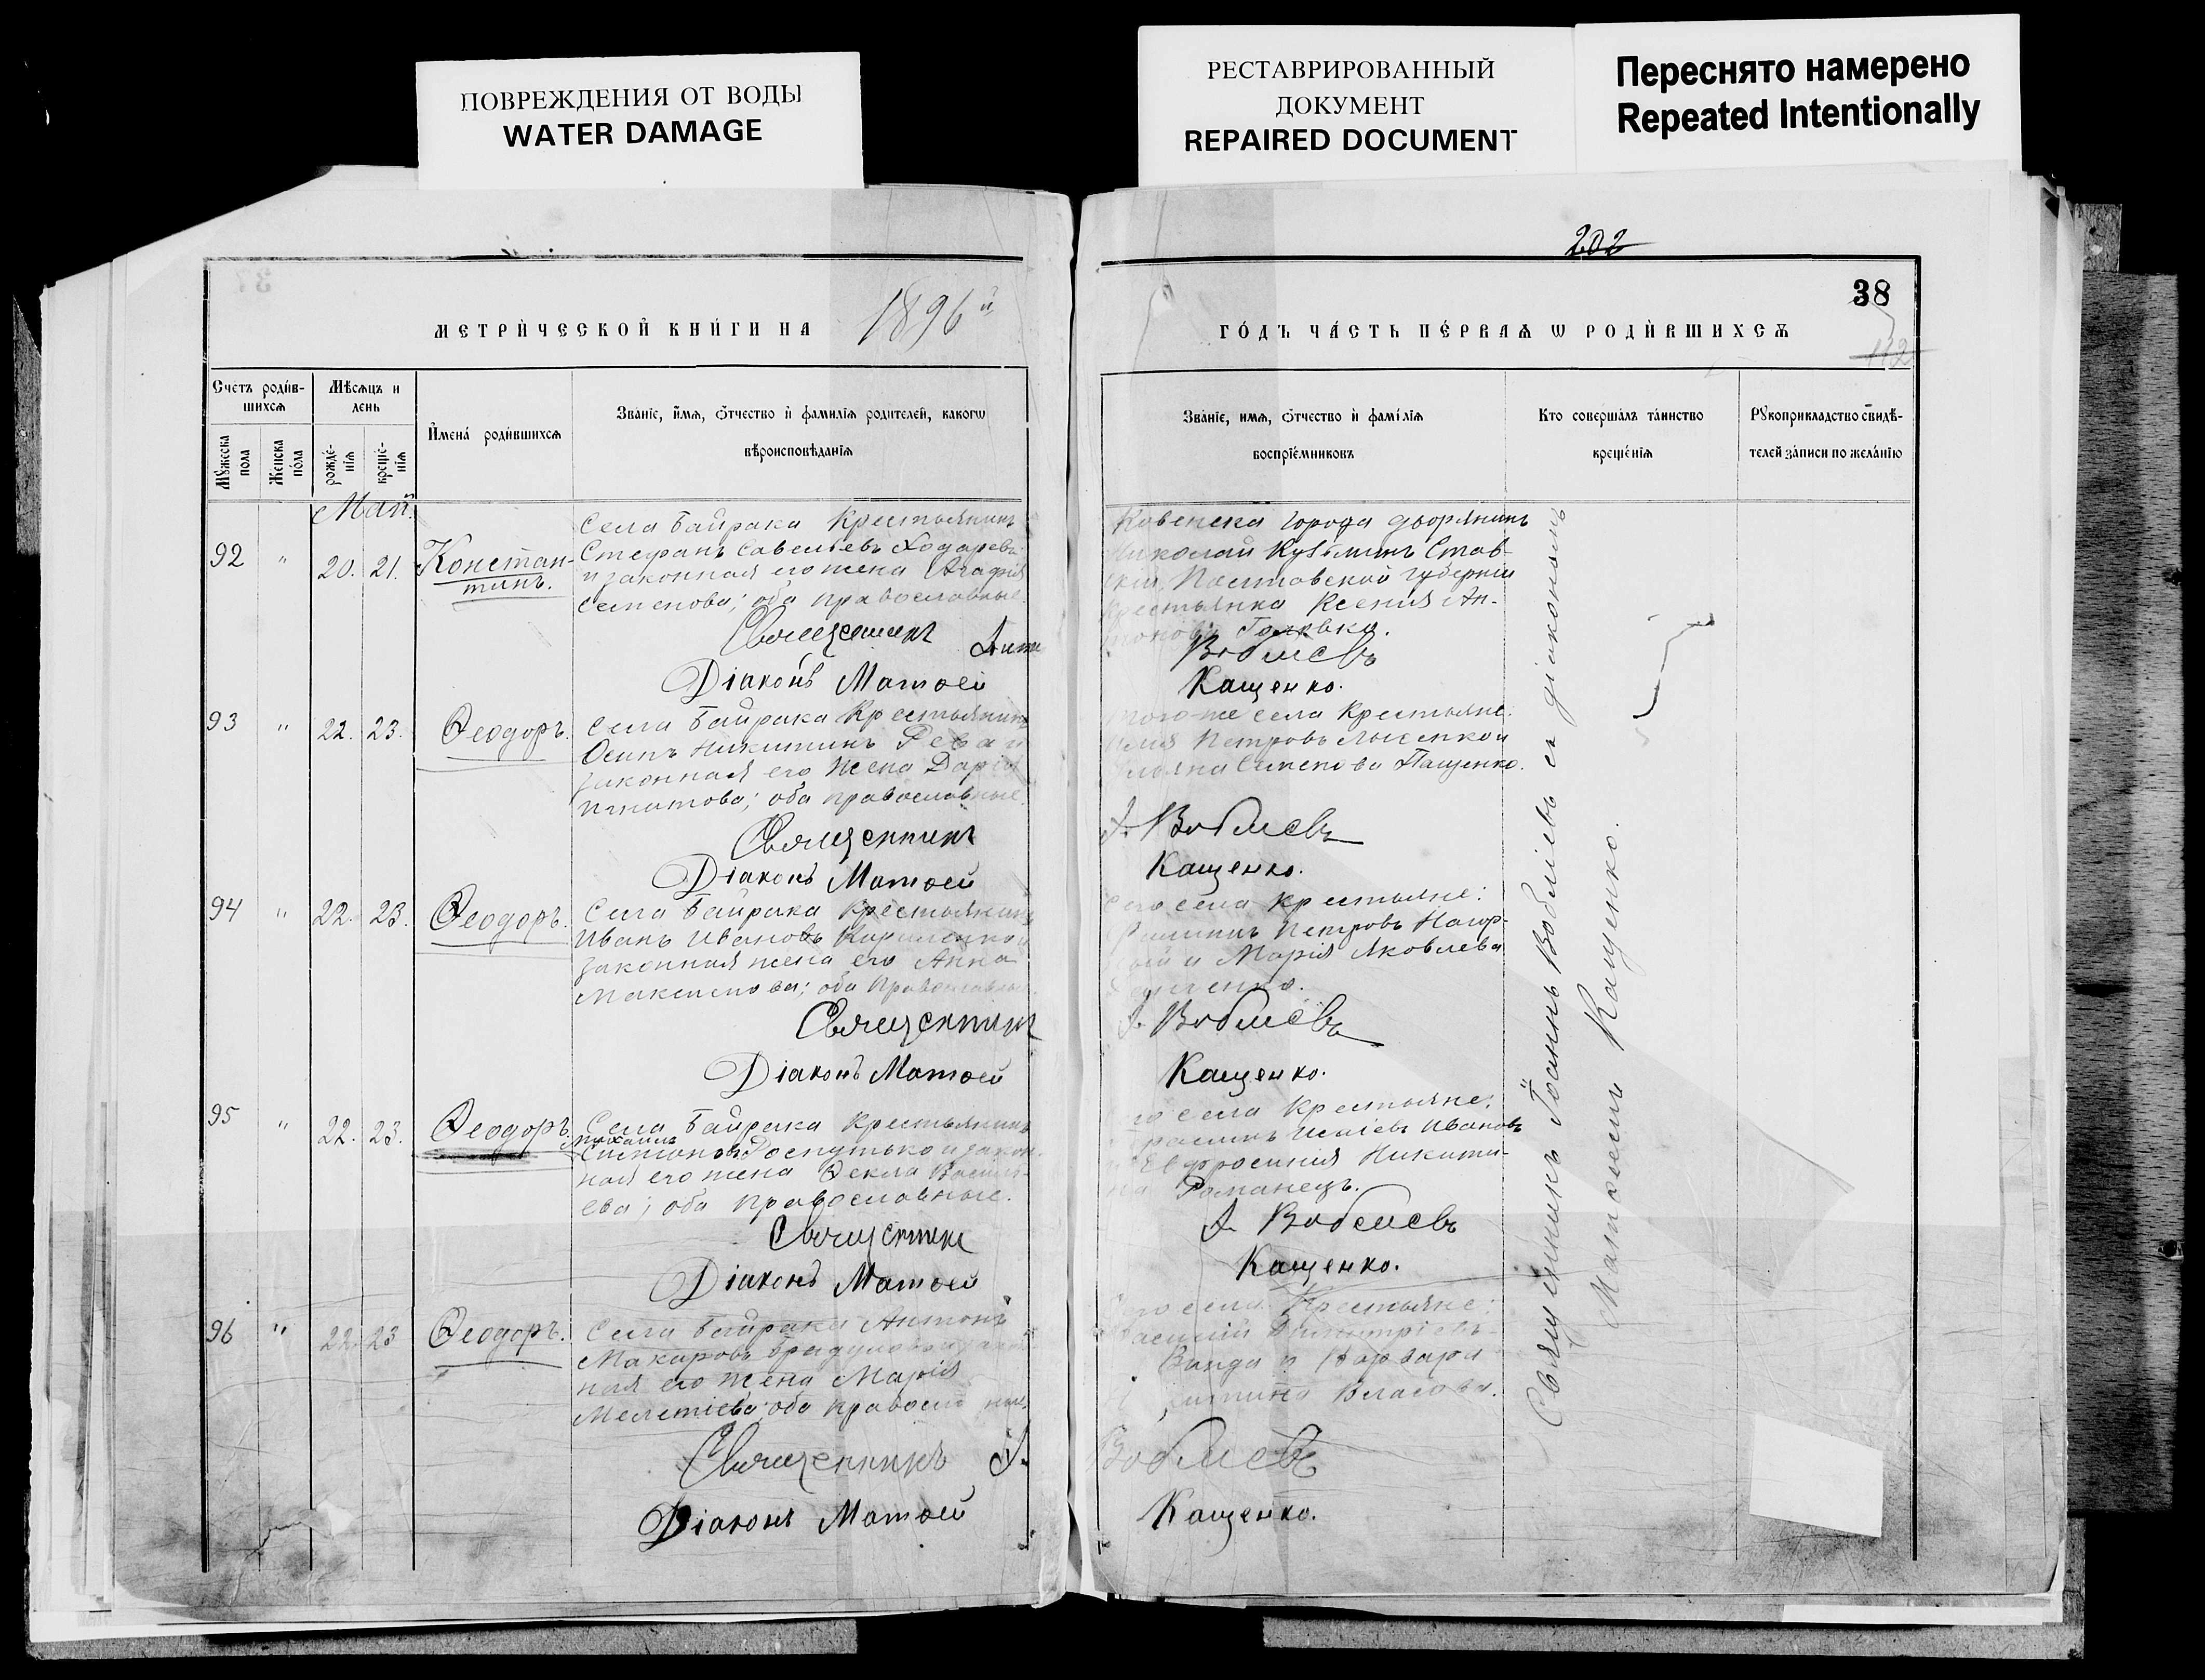 ПОВРЕЖДЕНИЯ ОТ ВОДЫ
WATER DAMAGE
РЕСТАВРИРОВАННЫЙ
ДОКУМЕНТ
REPAIRED DOCUMENT
Переснято намерено
Repeated Intentionally
202
38
МЕТРИ́ЧЕСКОЙ КНИ́ГИ НА 1896й
ГО́ДЪ ЧА́СТЬ ПЕ́РВАѦ Ѡ РОДИ́ВШИХСѦ
Счетъ роди́в-
шихсѧ
Мѣсѧцъ и
день
Мꙋжеска
пола
Женска
по́ла
рожде́-
нїѧ
креще́-
нїѧ
И҆мена́ роди́вшихсѧ
Зва́нїе, и҆́мѧ, ѻ҆́тчество и҆ фамилїѧ родителей, какогѡ
вѣроисповѣданїѧ
Зва́нїе, имѧ, ѻ҆тчество и҆ фамі́лїѧ
воспрїе́мниковъ
Кто соверша́лъ та́инство
креще́нїѧ
Рꙋкоприкладство свидѣ́-
телей за́писи по жела́нїю
Май
92 " 20. 21. Констан-
тинъ.
Села Байрака Крестьянинъ
Стефанъ Савельевъ Ходарева
и законная его жена Агафия
Семенова; оба православные
Священникъ
Діаконъ Матѳей
города дворянинъ
Николай Кузьминъ Став-
Полтавской губерніи
Крестьянка Ксения Ан-
Головка.
Воблиевъ
Кащенко.
93 " 22. 23. Ѳеодоръ.
Села Байрака Крестьянинъ
Осипъ Никитинъ Рева и
законная его жена Дарія
Игнатова; оба православные.
Священникъ
Діаконъ Матѳей
того-же села Крестьяне:
Петровъ Лысенко и
Семенова Пащенко.
І. Воблиевъ
Кащенко.
94 " 22. 23. Ѳеодоръ.
Села Байрака Крестьянинъ
Иванъ Ивановъ Кириленко и
законная жена его Анна
Максимова; оба Православные
Священникъ
Діаконъ Матѳей
Сего села Крестьяне:
Филиппъ Петровъ Нагор-
ный и Марія Яковлева
І. Воблиевъ
Кащенко.
95 " 22. 23. Ѳеодоръ.
Села Байрака Крестьянинъ
Михаилъ
Симоновъ Роспутько и закон-
ная его жена Ѳекла Василь-
ева; оба православные.
Священникъ
Діаконъ Матѳей
Сего села Крестьяне:
Ивановъ
и Евфросиния Никити-
на Романецъ.
І. Воблиевъ
Кащенко.
96 " 22. 23 Ѳеодоръ.
Села Байрака Антонъ
Макаровъ
ная его жена Марія
Мелетіева; оба правосл ные.
Священникъ І.
Діаконъ Матѳей
Сего села Крестьяне:
Василий Димитріевъ
и Варвара
Власова.
Воблиевъ
Кащенко.
Священникъ Іоаннъ Воблиевъ съ діакономъ
Матѳеемъ Кащенко.